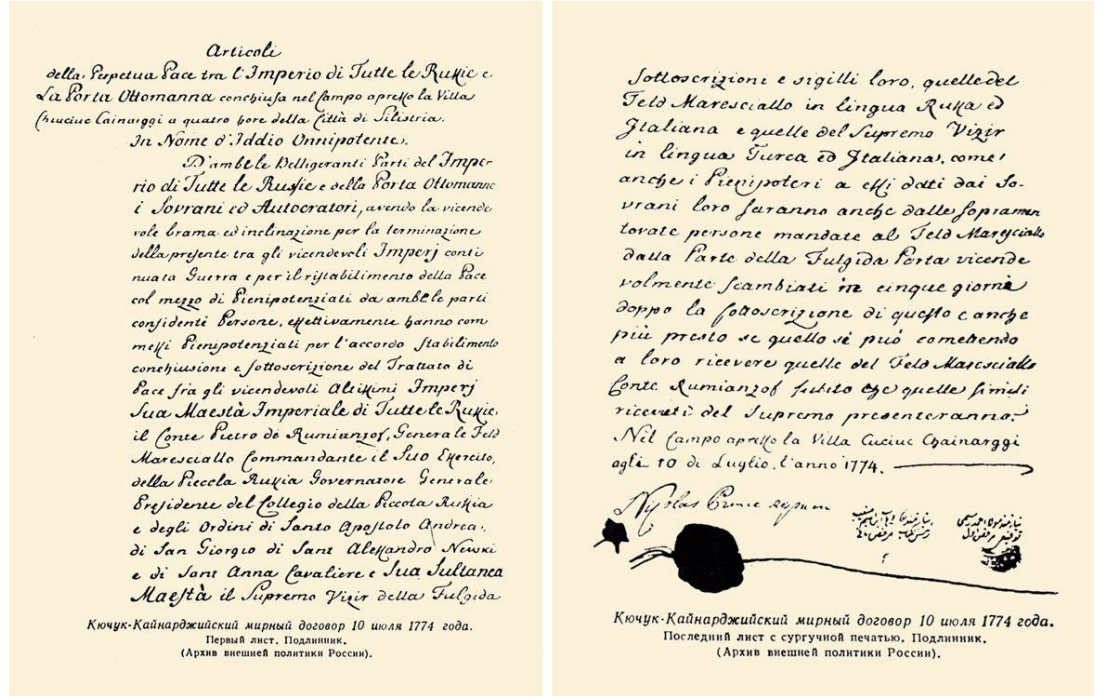 Articoli
della Perpetua Pace tra l'Imperio di Tutte le Russie e
La Porta Ottomanna conchiusa nel Campo apresso la Villa
Chuciuc Cainarggi a quatro hore della Città di Silistria.
In Nome d'Iddio Onnipotente.
D'ambele Belligeranti Parti del Impe-
rio di Tutte le Russie e della Porta Ottomanne
i Sovrani ed Autocratori, avendo la vicende
vole brama ed inclinazione per la terminazione
della presente tra gli vicendevoli Imperj conti
nuata Guerra e per il ristabilimento della Pace
col mezzo di Pienipotenziati da ambele parti
confidenti Persone, effettivamente hanno com
messi Pienipotenziati per l'accordo stabilimento
conchiusione e sottoscrizione del Trattato di
Pace fra gli vicendevoli Altissimi Imperj
Sua Maestà Imperiale di Tutte le Russie,
il Conte Pietro de Rumianzof, Generale Feld
Maresciallo Commandante il Suo Esercito,
della Piccola Russia Governatore Generale
Presidente del Collegio della Piccola Russia
e degli Ordini di Santo Apostolo Andrea,
di San Giorgio di Sant Alessandro Newski
e di Sant Anna Cavaliere e Sua Sultanea
Maestà il Supremo Vizir della Fulgida
Кючук-Кайнарджийский мирный договор 10 июля 1774 года.
Первый лист. Подлинник.
(Архив внешней политики России).
sottoscrizioni e sigilli loro, quelle del
Feld Maresciallo in lingua Russa ed
Italiana e quelle del Supremo Vizir
in lingua Turca ed Italiana, come
anche i Pienipoteri a essi dati dai So-
vrani loro saranno anche dalle sopramen
tovate persone mandate al Feld Maresciallo
dalla Parte della Fulgida Porta vicende
volmente scambiati in cinque giorni
doppo la sottoscrizione di questo e anche
più presto se quello si può
a loro ricevere quelle del Feld Maresciallo
Conte Rumianzof che quelle simili
ricevuti del Supremo presenteranno.
Nel Campo apresso la Villa Cuciuc Chainarggi
agli 10 di Luglio, l'anno 1774.
Кючук-Кайнарджийский мирный договор 10 июля 1774 года.
Последний лист с сургучной печатью. Подлинник.
(Архив внешней политики России).